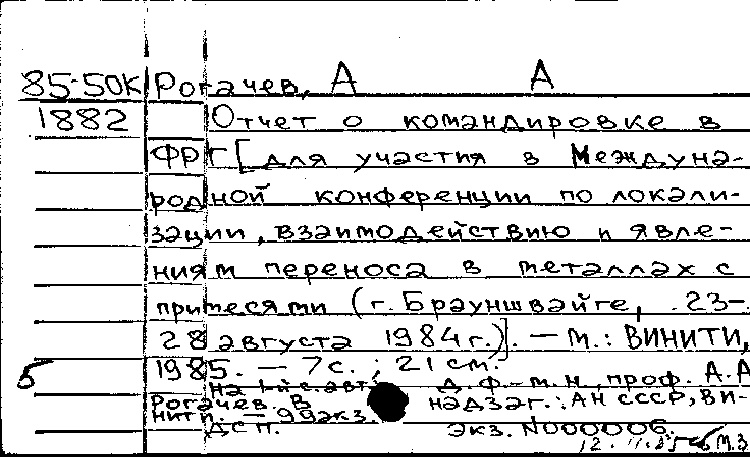 85-50К Рогачев, А А
1882 Отчет о командировке в
ФРГ [для участия в Междуна-
родной конференции по локали-
зации, взаимодействию и явле-
ниям переноса в металлах с
примесями (г. Брауншвайге, 23-
28 августа 1984 г.)]. — М.: ВИНИТИ,
5 1985. — 7 с. ; 21 см.
На 1-й с. авт.: д.ф.-м.н., проф. А.А
Рогачев. В надзаг.: АН СССР, ВИ-
НИТИ. — 99 экз.
ДСП. экз. N000006.
12.11.85 М.З